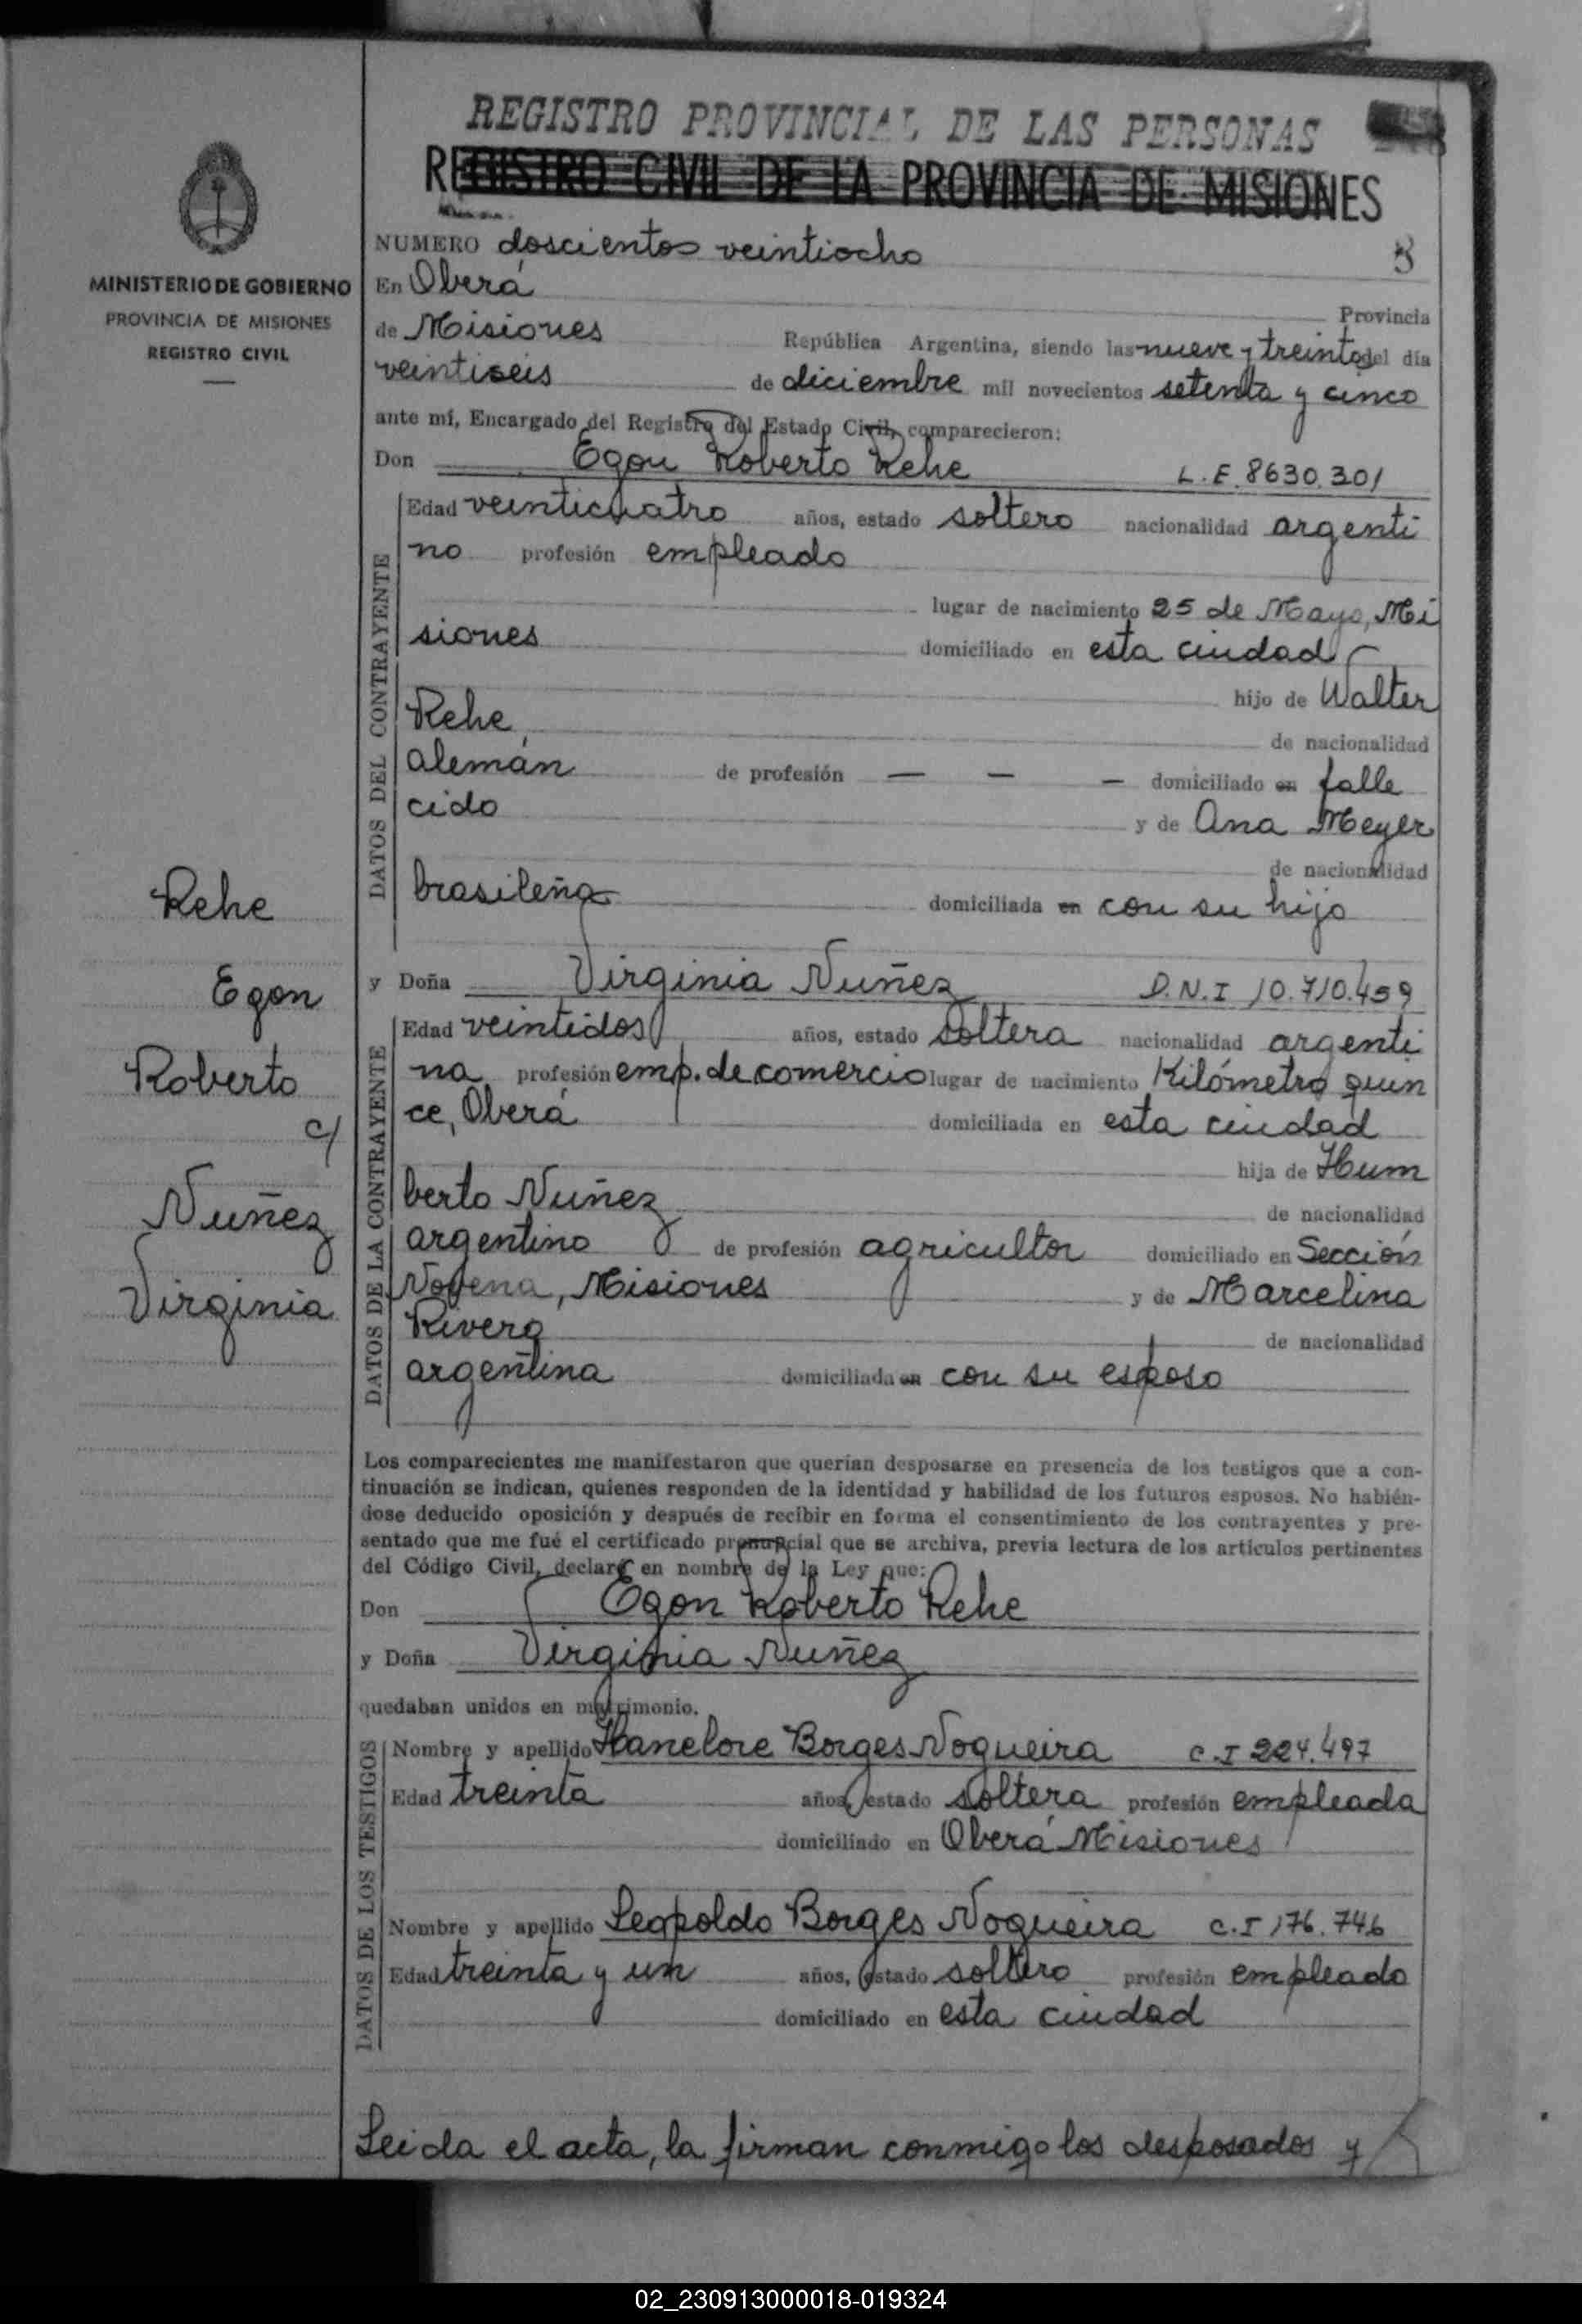 REGISTRO PROVINCIAL DE LAS PERSONAS
REGISTRO CIVIL DE LA PROVINCIA DE MISIONES
MINISTERIO DE GOBIERNO
PROVINCIA DE MISIONES
REGISTRO CIVIL
NUMERO doscientos veintiocho
En Oberá
Provincia
de Misiones República Argentina, siendo las nueve y treinta del día
veintiseis de diciembre mil novecientos setenta y cinco
ante mí, Encargado del Registro del Estado Civil, comparecieron:
Don Egon Roberto Rehe L.E. 8630.301
DATOS DEL CONTRAYENTE
Edad veinticuatro años, estado soltero nacionalidad argenti
no profesión empleado
lugar de nacimiento 25 de Mayo, Mi
siones domiciliado en esta ciudad
hijo de Walter
Rehe,
de nacionalidad
alemán de profesión — — — domiciliado en falle
cido
y de Ana Meyer
de nacionalidad
brasileña domiciliada en con su hijo
Rehe
Egon
Roberto
c/
Nuñez
Virginia
y Doña Virginia Nuñez D.N.I 10.710.459
DATOS DE LA CONTRAYENTE
Edad veintidos años, estado soltera nacionalidad argenti
na profesión emp. de comercio lugar de nacimiento Kilómetro quin
ce, Oberá domiciliada en esta ciudad
hija de Hum
berto Nuñez
de nacionalidad
argentino de profesión agricultor domiciliado en Sección
Novena, Misiones y de Marcelina
Rivero
de nacionalidad
argentina domiciliada en con su esposo
Los comparecientes me manifestaron que querían desposarse en presencia de los testigos que a con-
tinuación se indican, quienes responden de la identidad y habilidad de los futuros esposos. No habién-
dose deducido oposición y después de recibir en forma el consentimiento de los contrayentes y pre-
sentado que me fué el certificado prenupcial que se archiva, previa lectura de los artículos pertinentes
del Código Civil, declaré en nombre de la Ley que:
Don Egon Roberto Rehe
y Doña Virginia Nuñez
quedaban unidos en matrimonio.
DATOS DE LOS TESTIGOS
Nombre y apellido Hanelore Borges Nogueira C.I 224.497
Edad treinta años, estado soltera profesión empleada
domiciliado en Oberá Misiones
Nombre y apellido Leopoldo Borges Nogueira C.I 176.746
Edad treinta y un años, estado soltero profesión empleado
domiciliado en esta ciudad
Leida el acta, la firman conmigo los desposados y
02_230913000018-019324